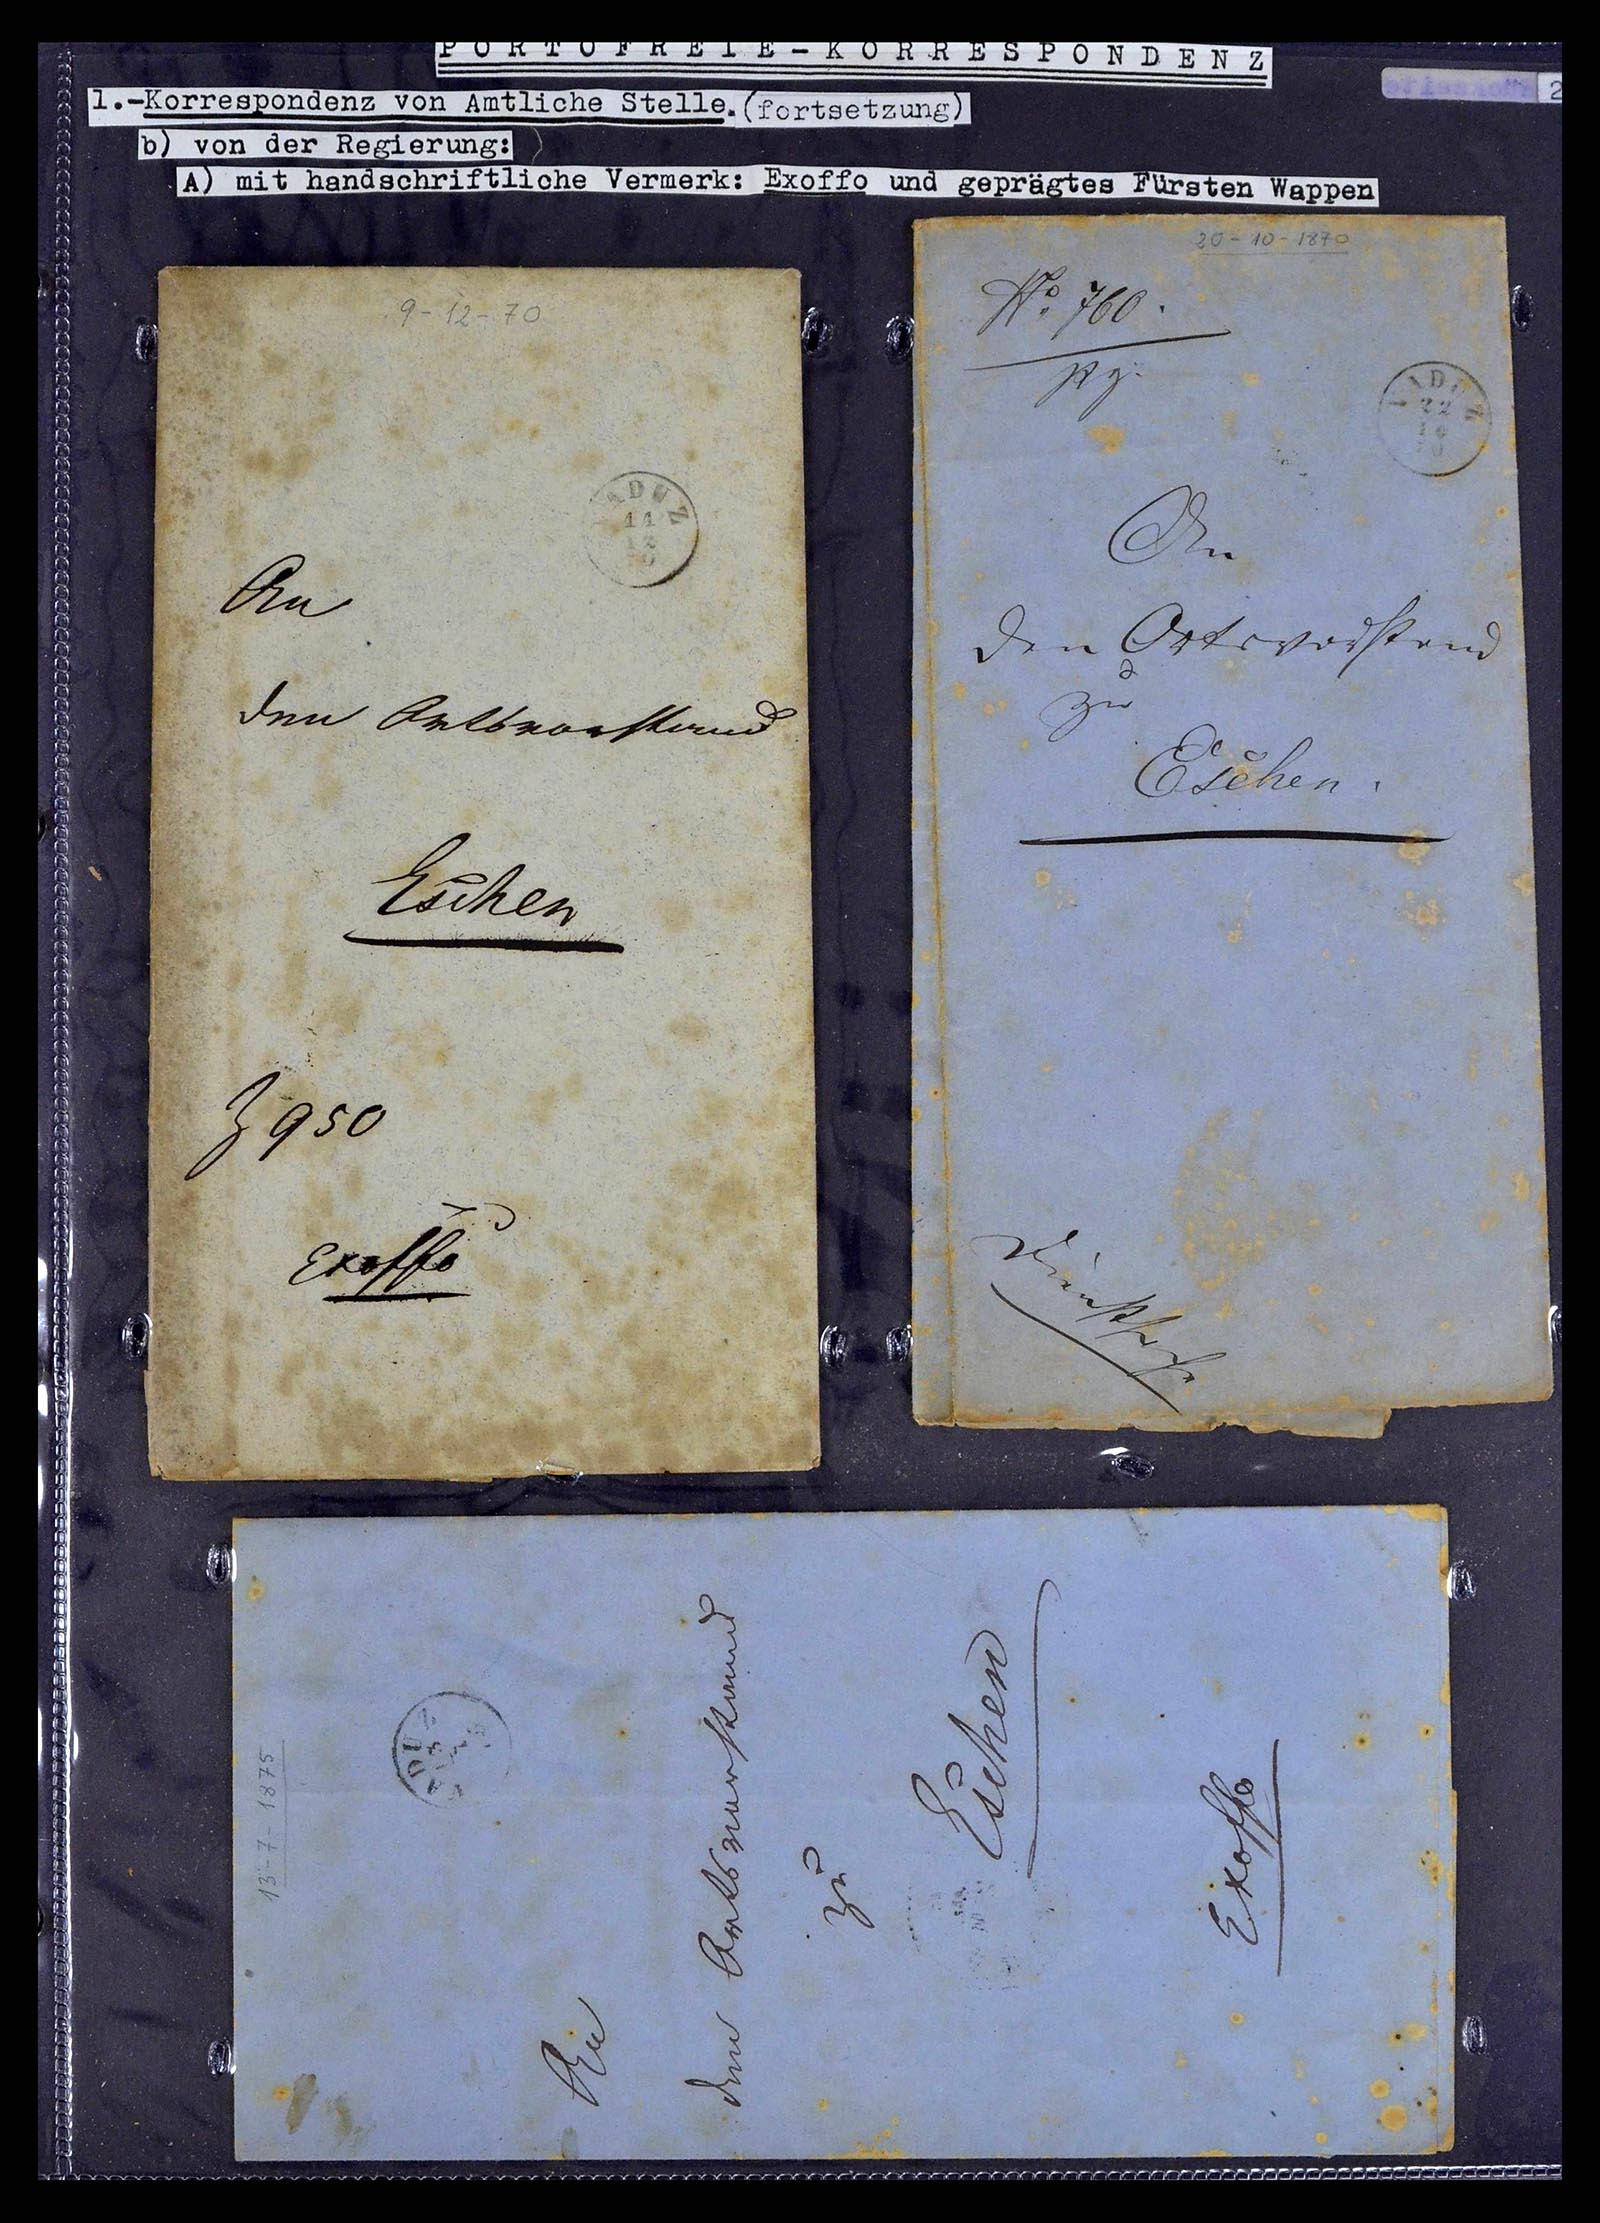 PORTOFREIE-KORRESPONDENZ
2
1.-Korrespondenz von Amtliche Stelle.(fortsetzung)
b) von der Regierung:
A) mit handschriftliche Vermerk: Exoffo und geprägtes Fürsten Wappen
9-12-70
ADUZ
11
12
An
den Ortsvorstand
Eschen
Z 950
Exoffo
20-10-1870
No. 760.
VADUZ
22
10
An
den Ortsvorstand
zu
Eschen.
Dienstsache
13-7-1875
VADUZ
An
den Ortsvorstand
zu
Eschen
Exoffo